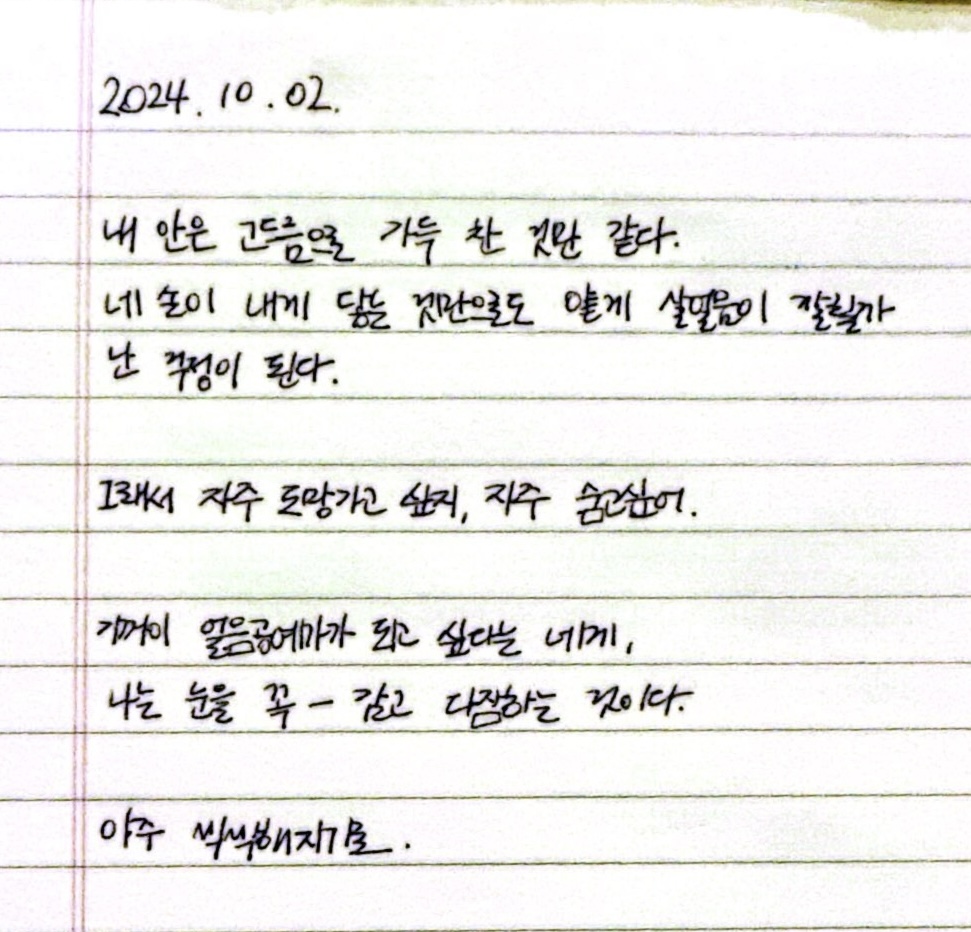 2024. 10. 02.
내 안은 고드름으로 가득 찬 것만 같다.
네 손이 내게 닿는 것만으로도 얕게 살얼음이 잘힐까
난 걱정이 된다.
그래서 자주 도망가고 싶지, 자주 숨고싶어.
기꺼이 얼음공예가가 되고 싶다는 네게,
나는 눈을 꼭 - 감고 다짐하는 것이다.
아주 씩씩해지기를.